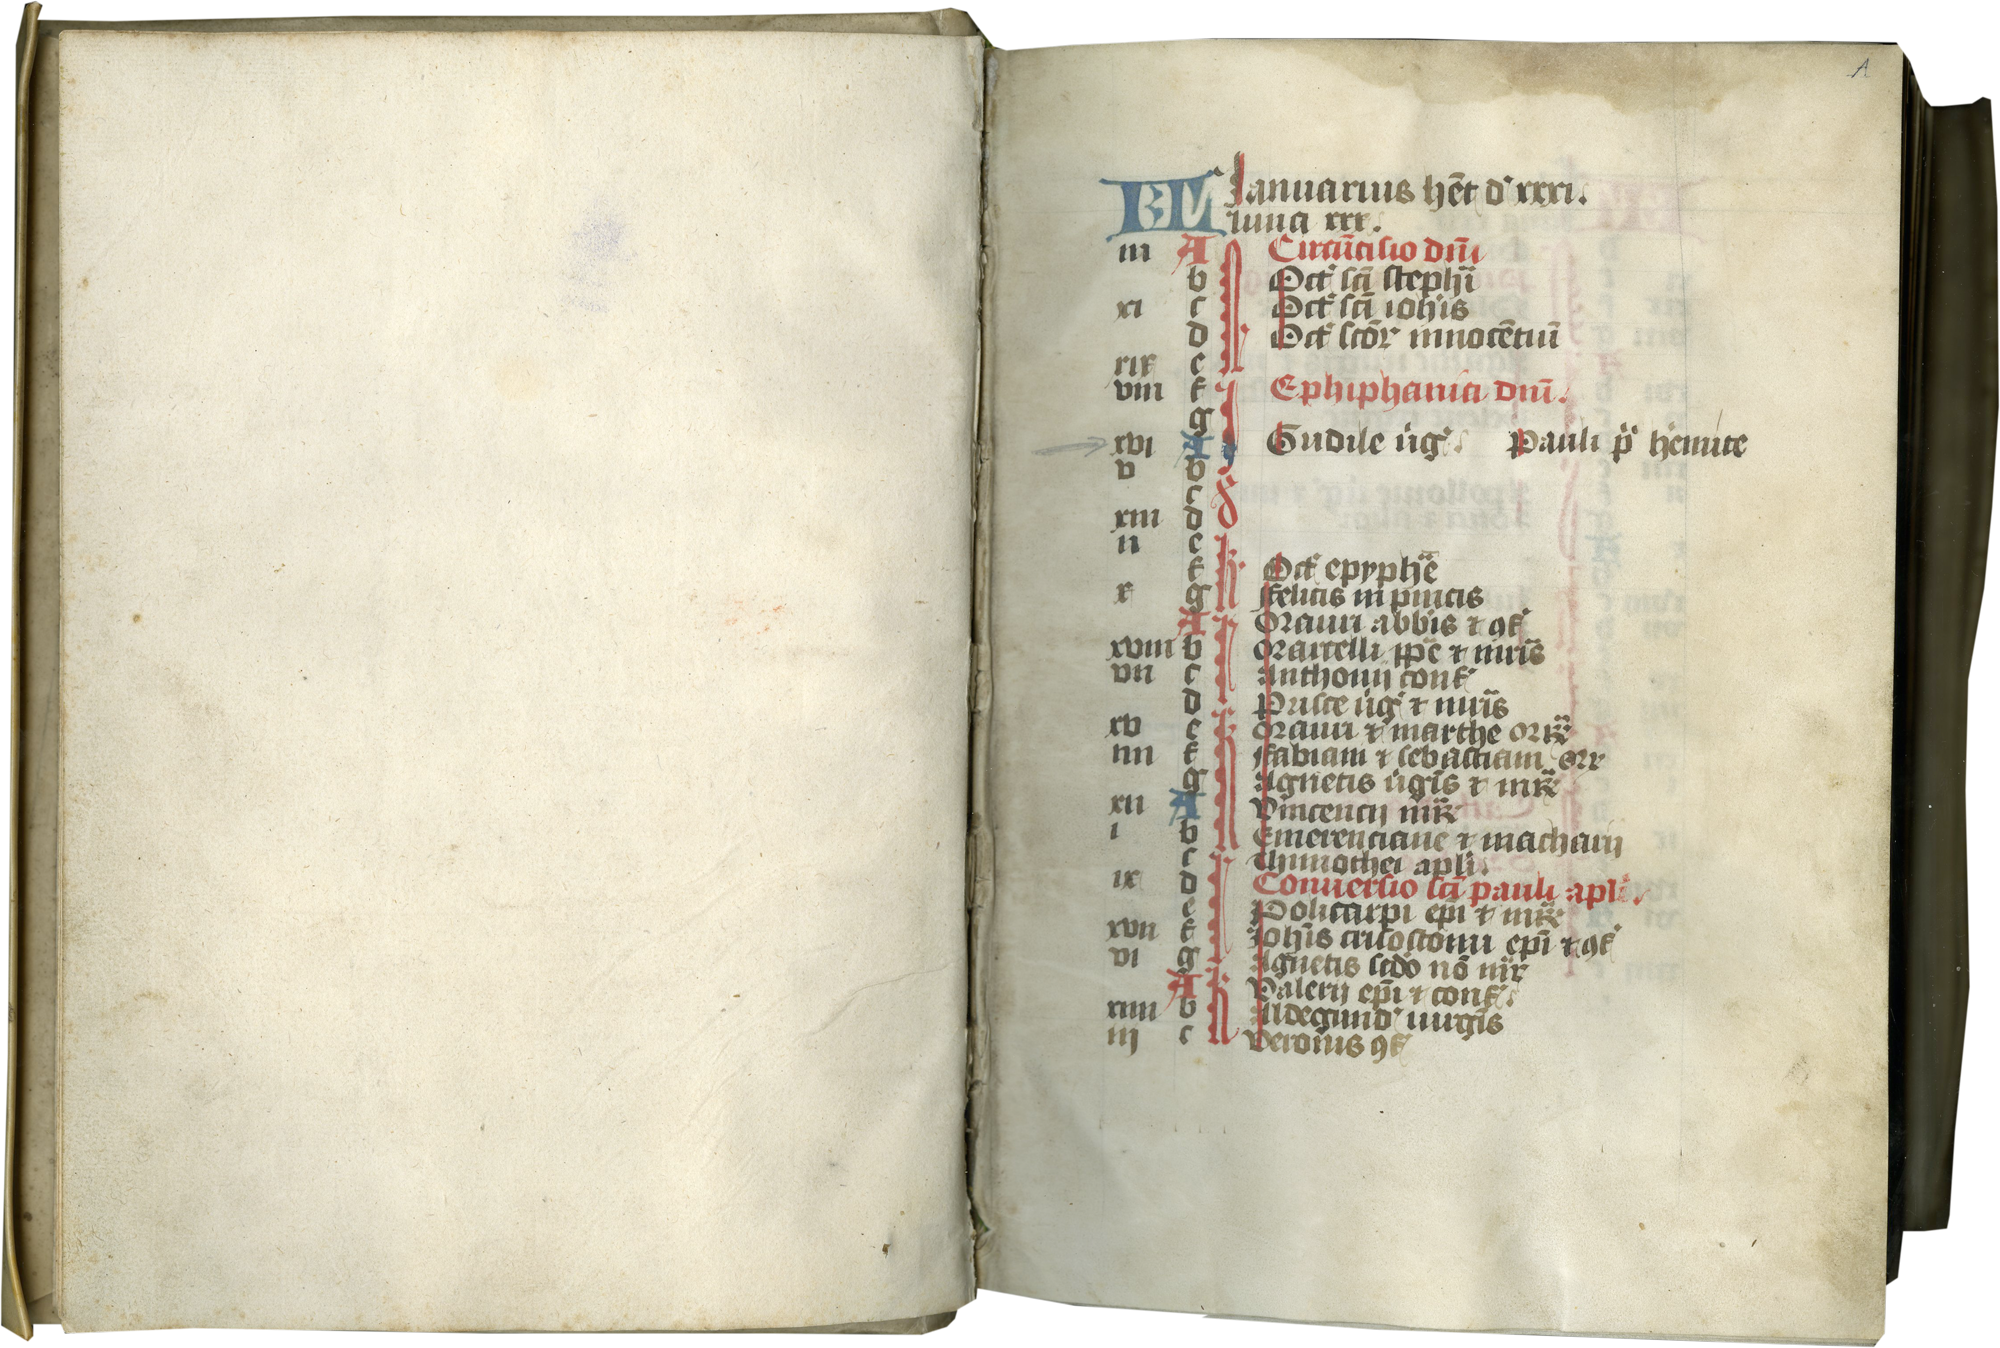 A
KL Januarius hēt d' xxxi.
luna xxx.
iii A Circūcisio dn̄i
b Oct' sc̄i stephi
xi c Oct' sc̄i ioh̄is
d Oct' sc̄or innocētiū
xix e
viii f Ephiphania dn̄i.
g
xvi A Gudile v̄ig' Pauli p̄ h̄emite
v b
c
xiii d
ii e
f Oct' epyph̄e
x g Felicis in pincis
A Mauri abbis et 9f'
xviii b Marcelli pp̄e et m̄ris
vii c Anthonij conf'
d Prisce v̄ig' et m̄ris
xv e Marii et marthe mr̄
iiii f Fabiani et sebastiani mr̄
g Agnetis v̄igis et mr̄
xii A Vincencij mr̄
i b Emerenciane et macharij
c Thimothei apli.
ix d Conuersio sc̄i pauli apli.
e Policarpi ep̄i et mr̄
xvii f Ioh̄is crisostomi ep̄i et 9f'
vi g Agnetis sc̄do nō mr̄
A Valerij ep̄i et conf'.
xiiii b Aldegund' uirgīs
iij c Veronis 9f'